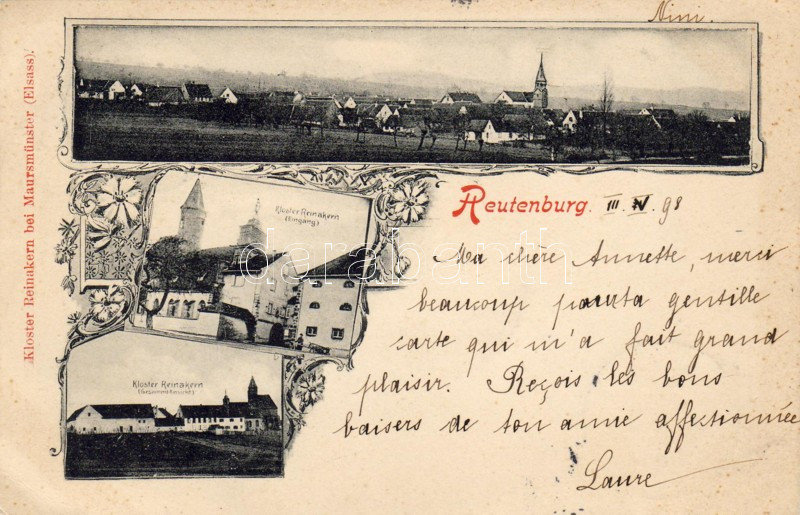 Nini.
Kloster Reinakern bei Maursmünster (Elsass).
Kloster Reinakern
(Eingang)
Kloster Reinakern
(Gesammtansicht)
Reutenburg. III. IV. 98
Ma chère Annette, merci
beaucoup pour ta gentille
carte qui m'a fait grand
plaisir. Reçois les bons
baisers de ton amie affectionnée
Laure
darabanth.com